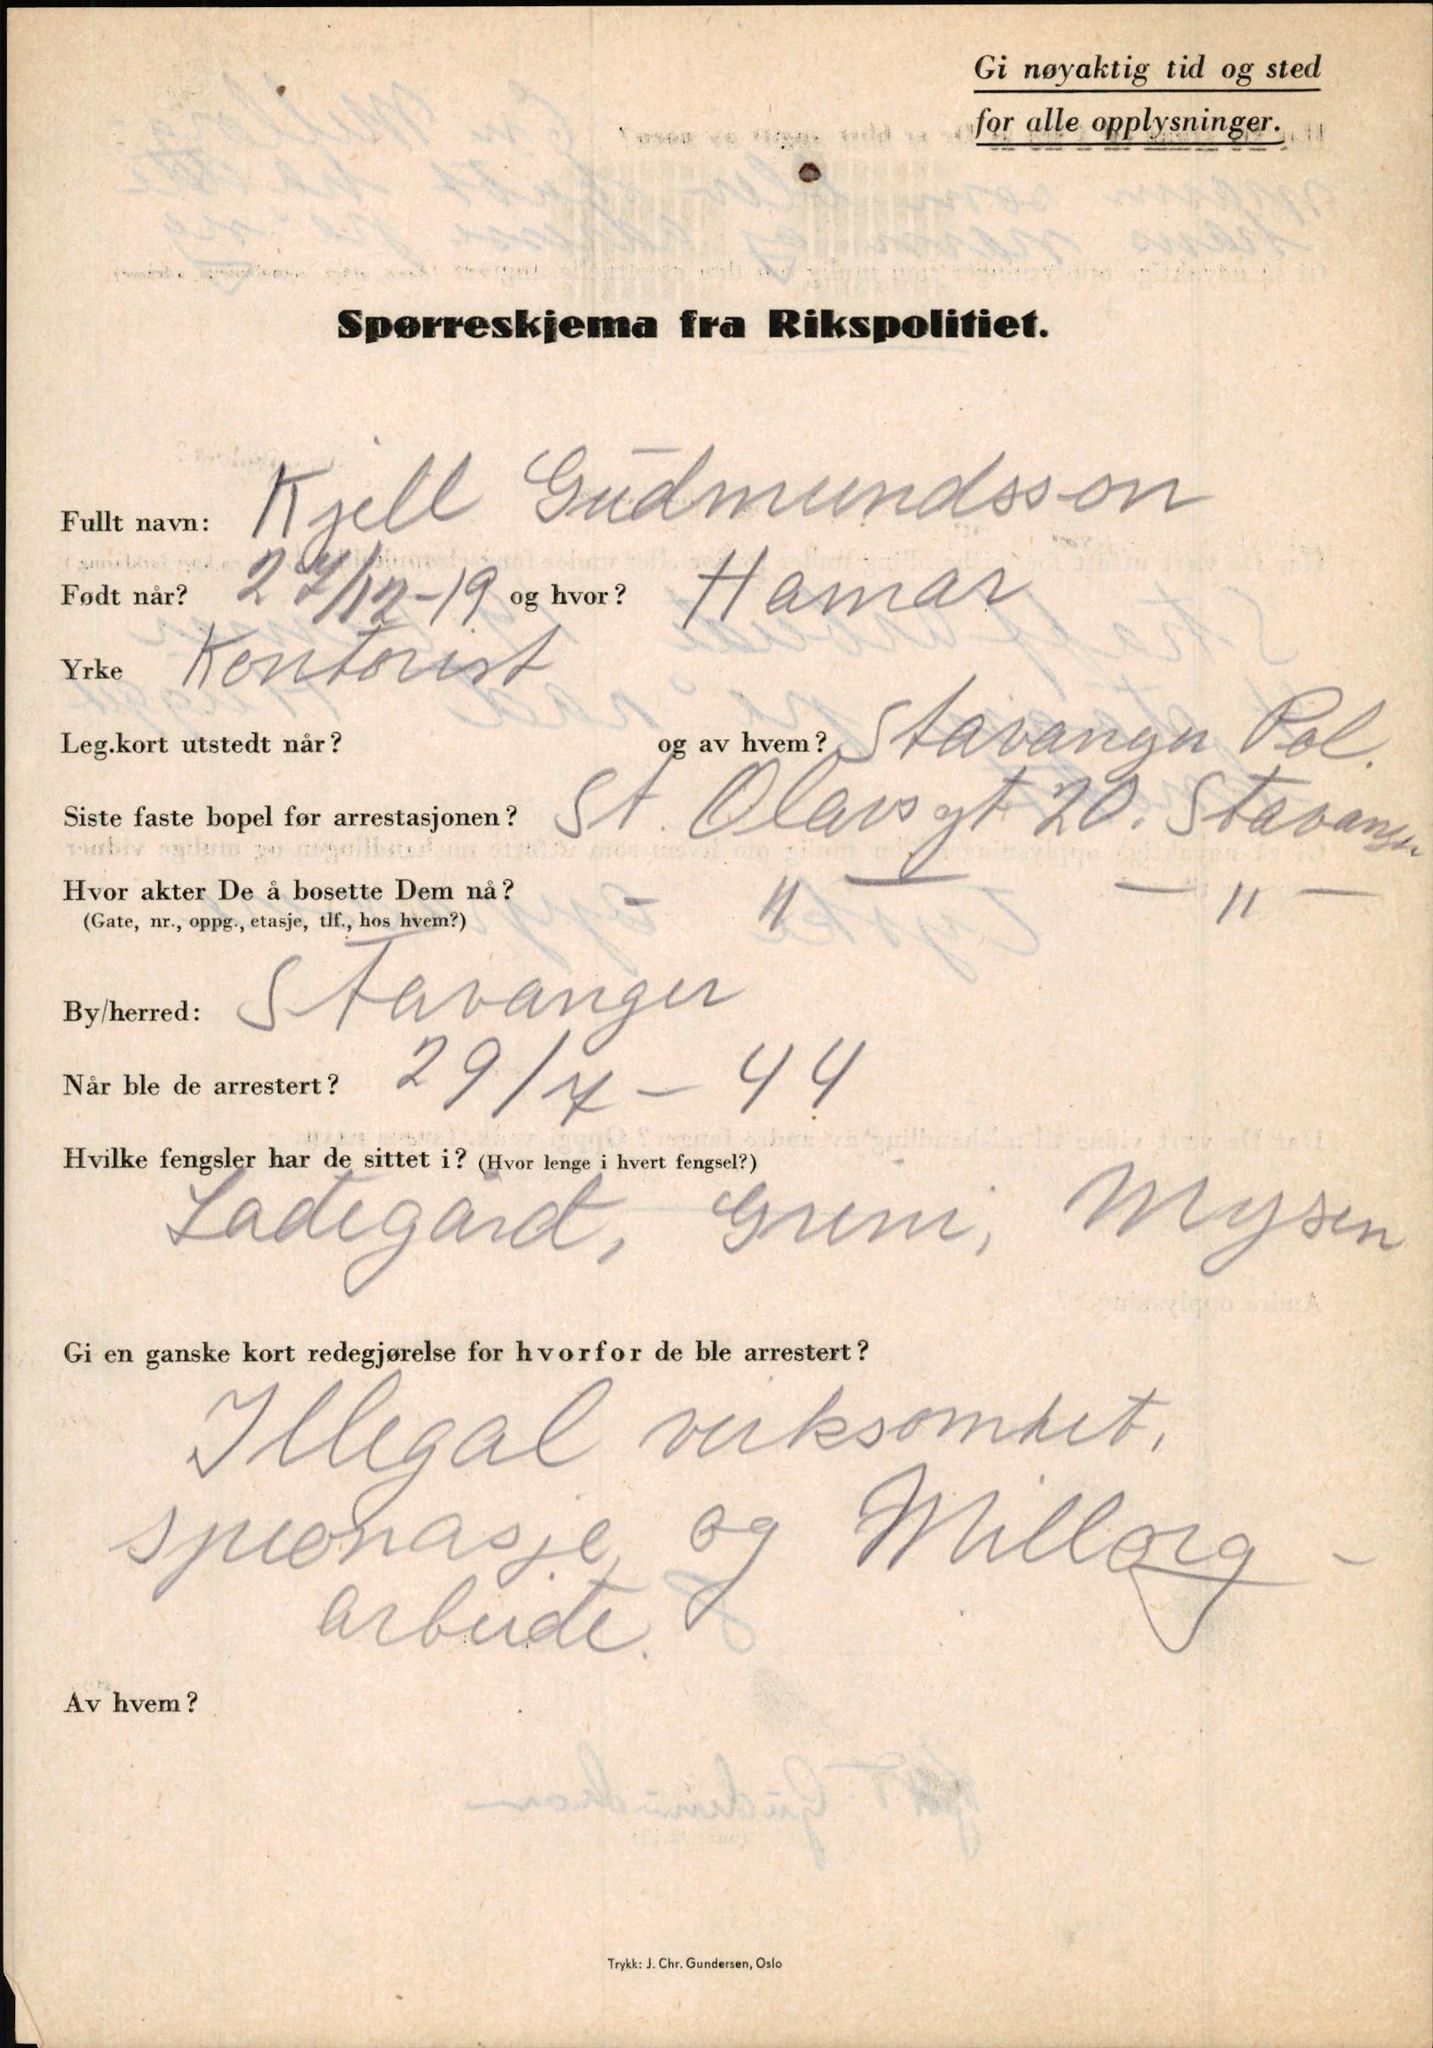 Gi nøyaktig tid og sted
for alle opplysninger.
Spørreskjema fra Rikspolitiet.
Fullt navn: Kjell Gudmundsson
Født når? 27/12-19 og hvor? Hamar
Yrke Kontorist
Leg.kort utstedt når? og av hvem? Stavanger Pol.
Siste faste bopel før arrestasjonen? St. Olavsgt 20. Stavanger
Hvor akter De å bosette Dem nå? - " - - " -
(Gate, nr., oppg., etasje, tlf., hos hvem?)
By/herred: Stavanger
Når ble de arrestert? 29/7-44
Hvilke fengsler har de sittet i? (Hvor lenge i hvert fengsel?)
Ladegård, Grini, Mysen
Gi en ganske kort redegjørelse for hvorfor de ble arrestert?
Illegal virksomhet,
spionasje og Millorg-
arbeide.
Av hvem?
Trykk: J. Chr. Gundersen, Oslo